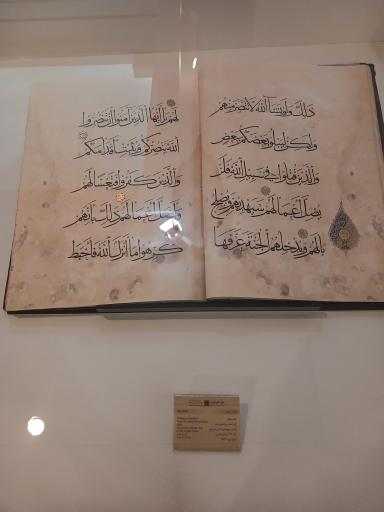 ذلك ولو يشاء الله لانتصر منهم
ولكن ليبلو بعضكم ببعض
والذين قتلوا في سبيل الله فلن
يضل أعمالهم سيهديهم ويصلح
بالهم ويدخلهم الجنة عرفها
لهم يا أيها الذين آمنوا إن تنصروا
الله ينصركم ويثبت أقدامكم
والذين كفروا فتعسا لهم
وأضل أعمالهم ذلك بأنهم
كرهوا ما أنزل الله فأحبط